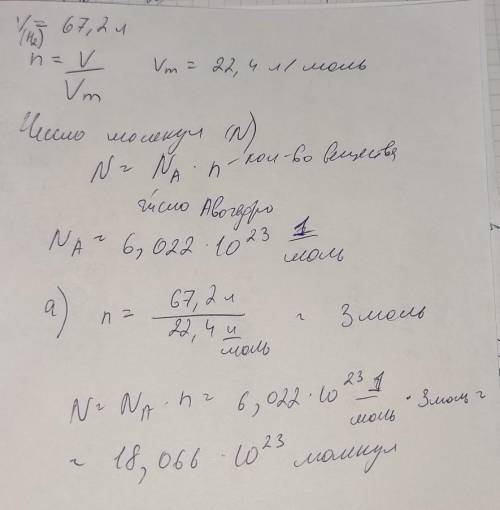 V(H₂) = 67,2 л
n = V/Vm Vm = 22,4 л/моль
Число молекул (N)
N = NA · n - кол-во вещества
число Авогадро
NA = 6,022 · 10²³ 1/моль
а) n = 67,2 л / 22,4 л/моль = 3 моль
N = NA · n = 6,022 · 10²³ 1/моль · 3 моль =
= 18,066 · 10²³ молекул